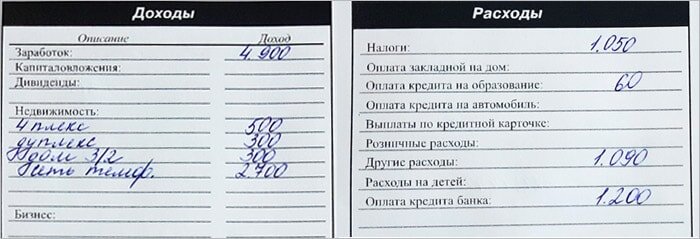 Доходы
Описание Доход
Заработок: 4.900
Капиталовложения:
Дивиденды:
Недвижимость:
4 плекс 500
дуплекс 300
дом 3/2 300
Сеть телеф. 2.700
Бизнес:
Расходы
Налоги: 1.050
Оплата закладной на дом:
Оплата кредита на образование: 60
Оплата кредита на автомобиль:
Выплаты по кредитной карточке:
Розничные расходы:
Другие расходы: 1.090
Расходы на детей:
Оплата кредита банка: 1.200